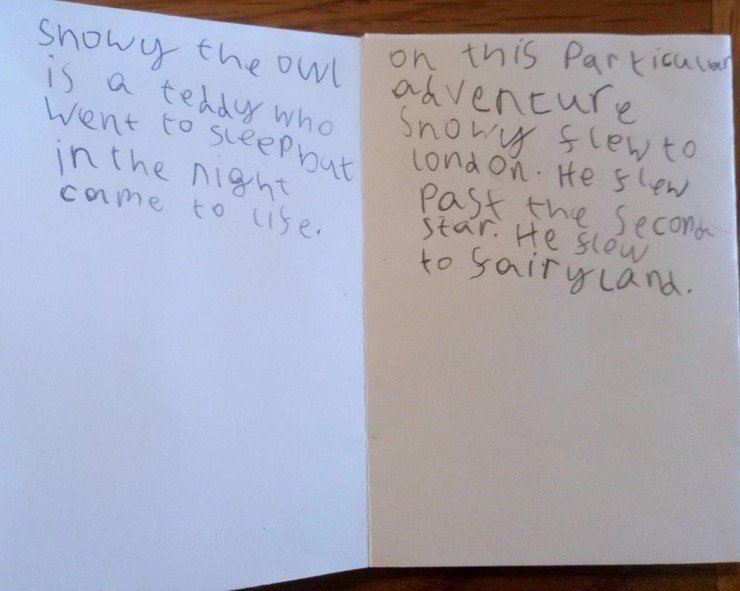 Snowy the owl
is a teddy who
Went to sleep but
in the night
came to life.
on this Particular
adventure
Snowy flew to
london. He flew
Past the Second
star. He flew
to fairyland.